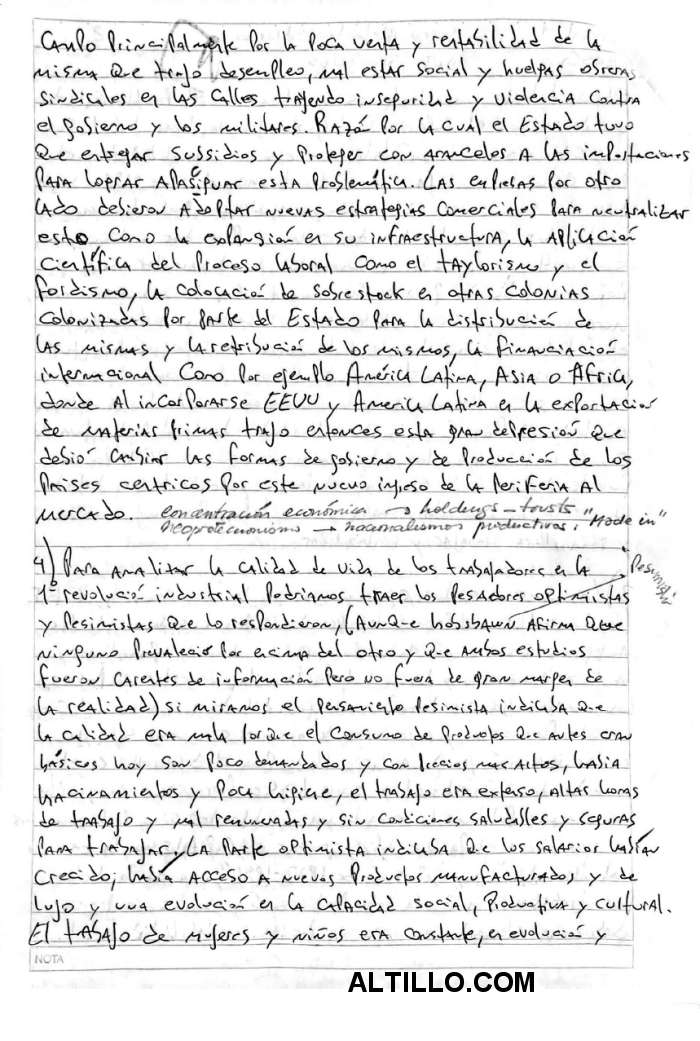 campo principalmente por la poca venta y rentabilidad de la
misma que trajo desempleo, mal estar social y huelgas obreras
sindicales en las calles trayendo inseguridad y violencia contra
el gobierno y los militares. Razón por la cual el Estado tuvo
que entregar subsidios y proteger con aranceles a las importaciones
para lograr apasiguar esta problemática. Las empresas por otro
lado debieron adoptar nuevas estrategias comerciales para neutralizar
esto como la expansión en su infraestructura, la aplicación
científica del proceso laboral como el taylorismo y el
fordismo, la colocación de sobrestock en otras colonias
colonizadas por parte del Estado para la distribución de
las mismas y la retribución de los mismos, la financiación
internacional como por ejemplo América Latina, Asia o África,
donde al incorporarse EEUU y America Latina en la exportación
de materias primas trajo entonces esta gran depresión que
debió cambiar las formas de gobierno y de producción de los
países centricos por este nuevo ingreso de la periferia al
mercado. concentración económica → holdings - trusts
neoproteccionismo → nacionalismos productivos: "Made in"
4) Para analizar la calidad de vida de los trabajadores en la
1º revolución industrial podriamos traer los pesadores optimistas
y pesimistas que lo respondieron, (aunque hobsbawn afirma que
ninguno prevaleció por encima del otro y que ambos estudios
fueron carentes de información pero no fuera de gran margen de
la realidad) si miramos el pensamiento pesimista indicaba que
la calidad era mala porque el consumo de productos que antes eran
básicos hoy son poco demandados y con precios mas altos, habia
hacinamientos y poca higiene, el trabajo era extenso, altas horas
de trabajo y mal renumeradas y sin condiciones saludables y seguras
para trabajar. La parte optimista indicaba que los salarios habían
crecido, había acceso a nuevos productos manufacturados y de
lujo y una evolución en la capacidad social, productiva y cultural.
El trabajo de mujeres y niños era constante, en evolución y
NOTA
ALTILLO.COM